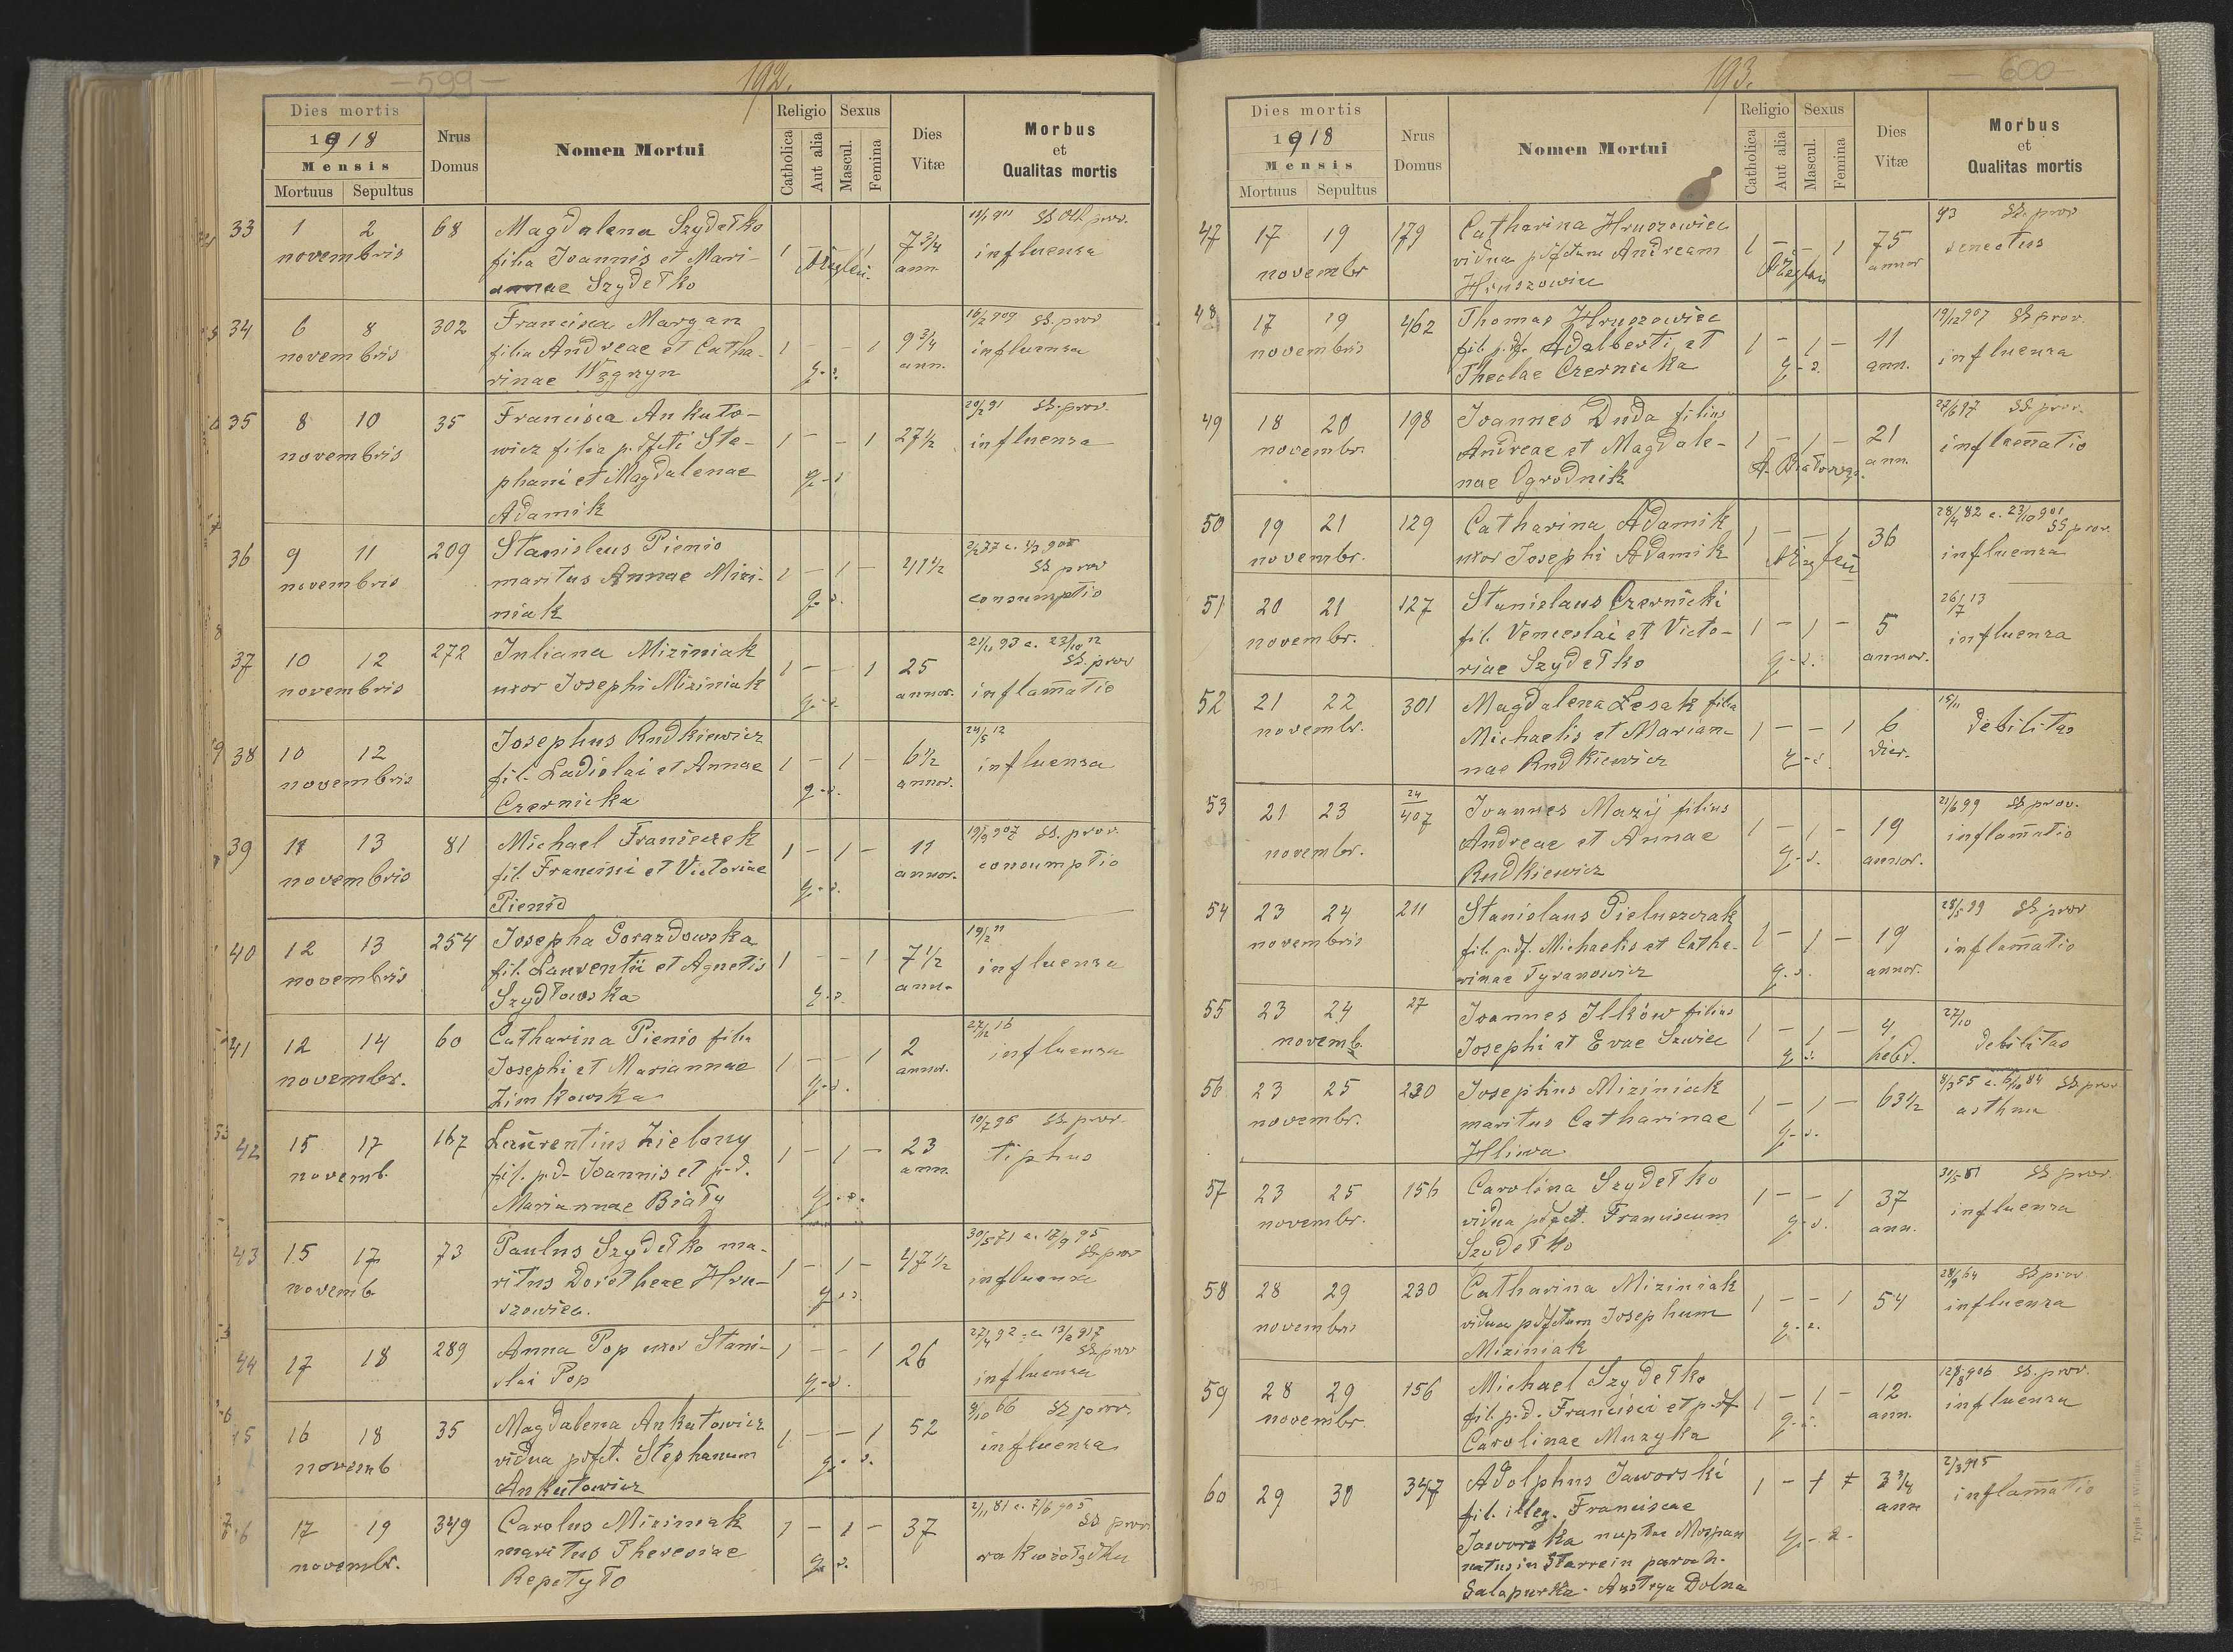 — 599 —
192.
Dies mortis
1918
Mensis
Mortuus Sepultus
Nrus
Domus
Nomen Mortui
Religio
Catholica
Aut alia
Sexus
Mascul.
Femina
Dies
Vitæ
Morbus
et
Qualitas mortis
33 1 2 68 Magdalena Szydełko 1 — — 1 7 3/4 SS. prov.
novembris filia Joannis et Mari- ann. influenza
annae Szydełko
34 6 8 302 Francisca Margan 1 — — 1 9 3/4 16/2 909 SS. prov
novembris filia Andreae et Catha- ann. influenza
rinae Węgrzyn q.-s.
35 8 10 35 Francisca Ankuto- 1 — — 1 27 1/2 20/2 91 SS. prov.
novembris wicz filia p. dfcti Ste- influenza
phani et Magdalenae q.-s.
Adamik
36 9 11 209 Stanislaus Pienio 1 — 1 — 41 1/2 SS prov
novembris maritus Annae Mizi- consumptio
niak q.-s.
37 10 12 272 Juliana Miziniak 1 — — 1 25 21/11 93 c. 23/10 12 SS. prov
novembris uxor Josephi Miziniak annor. inflam̄atio
q.-s.
38 10 12 Josephus Rudkiewicz 1 — 1 — 6 1/2 24/5 12
novembris fil. Ladislai et Annae annor. influenza
Czernicka q.-s.
39 11 13 81 Michael Franiczek 1 — 1 — 11 19/9 907 SS. prov.
novembris fil. Francisci et Victoriae annor. consumptio
Pienio q.-s.
40 12 13 254 Josepha Gorazdowska 1 — — 1 7 1/2 19/2 11
novembris fil. Laurentii et Agnetis ann. influenza
Szydłowska q.-s.
41 12 14 60 Catharina Pienio filia 1 — — 1 2 27/12 16
novembr. Josephi et Mariannae annor. influenza
Zimkowska q.-s.
42 15 17 167 Laurentius Zielony 1 — 1 — 23 10/7 95 SS prov.
novemb. fil. p.d. Joannis et p.d. ann. tiphus
Mariannae Biały q.-s.
43 15 17 73 Paulus Szydełko ma- 1 — 1 — 47 1/2 30/5 71 c. 17/9 95 SS prov
novemb ritus Dorotheae Hru- influenza
szowiec. q.-s.
44 17 18 289 Anna Pop uxor Stani- 1 — — 1 26 27/4 92 c. 13/2 917 SS prov
slai Pop q.-s. influenza
45 16 18 35 Magdalena Ankutowicz 1 — — 1 52 66 SS prov.
novemb vidua p. dfct. Stephanum influenza
Ankutowicz q.-s.
46 17 19 349 Carolus Miziniak 1 — 1 — 37 2/11 81 c. 7/6 905 SS prov
novembr. maritus Theresiae rak w żołądku
Repetyło q. s.
193.
— 600 —
Dies mortis
1918
Mensis
Mortuus Sepultus
Nrus
Domus
Nomen Mortui
Religio
Catholica
Aut alia
Sexus
Mascul.
Femina
Dies
Vitæ
Morbus
et
Qualitas mortis
47 17 19 179 Catharina Hruszowiec 1 — — 1 75 43 SS. prov
novembr vidua p. dfctum Andream annor senectus
Hruszowiec
48 17 19 462 Thomas Hruszowiec 1 — 1 — 11 19/12 907 SS prov.
novembris fil. p. df. Adalberti et ann. influenza
Theclae Czernicka q-s.
49 18 20 198 Joannes Duda filius 1 — 1 — 21 27/6 97 SS. prov.
novembr. Andreae et Magdale- ann. inflam̄atio
nae Ogrodnik
50 19 21 129 Catharina Adamik 1 — — 1 36 28/4 82 c. 23/10 901 SS prov.
novembr. uxor Josephi Adamik influenza
51 20 21 127 Stanislaus Czernicki 1 — 1 — 5 26/7 13
novembr. fil. Venceslai et Victo- annor. influenza
riae Szydełko q.-s.
52 21 22 301 Magdalena Lesak filia 1 — — 1 6 15/11
novembr. Michaelis et Marian- dier. debilitas
nae Rudkiewicz q-s.
53 21 23 24/407 Joannes Mazij filius 1 — 1 — 19 21/6 99 SS prov.
novembr. Andreae et Annae annor. inflam̄atio
Rudkiewicz q-s.
54 23 24 211 Stanislaus Pieluszczak 1 — 1 — 19 28/5 99 SS prov
novembris fil. p. df. Michaelis et Catha- annor. inflam̄atio
rinae Tyranowicz q.s.
55 23 24 27 Joannes Ilków filius 1 — 1 — 4 27/10
novemb. Josephi et Evae Szwiec hebd. debilitas
q-s.
56 23 25 230 Josephus Miziniak 1 — 1 — 63 1/2 8/3 55 c. 6/10 84 SS prov
novembr. maritus Catharinae asthma
Hliwa q-s.
57 23 25 156 Carolina Szydełko 1 — — 1 37 31/5 81 SS prov.
novembr. vidua p. dfct. Franciscum ann. influenza
Szydełko q-s.
58 28 29 230 Catharina Miziniak 1 — — 1 54 28/9 64 SS prov
novembris vidua p. dfctum Josephum influenza
Miziniak q-s.
59 28 29 156 Michael Szydełko 1 — 1 — 12 906 SS. prov.
novembr. fil. p.d. Francisci et p. df ann. influenza
Carolinae Muzyka q-s.
60 29 30 347 Adolphus Jaworski 1 — 3 3/4 2/3 915
fil. illeg. Franciscae ann inflam̄atio
Jaworska nuptae Mozpan q-s.
natus in Starrein paroch.
Salapurka. Austrya Dolna